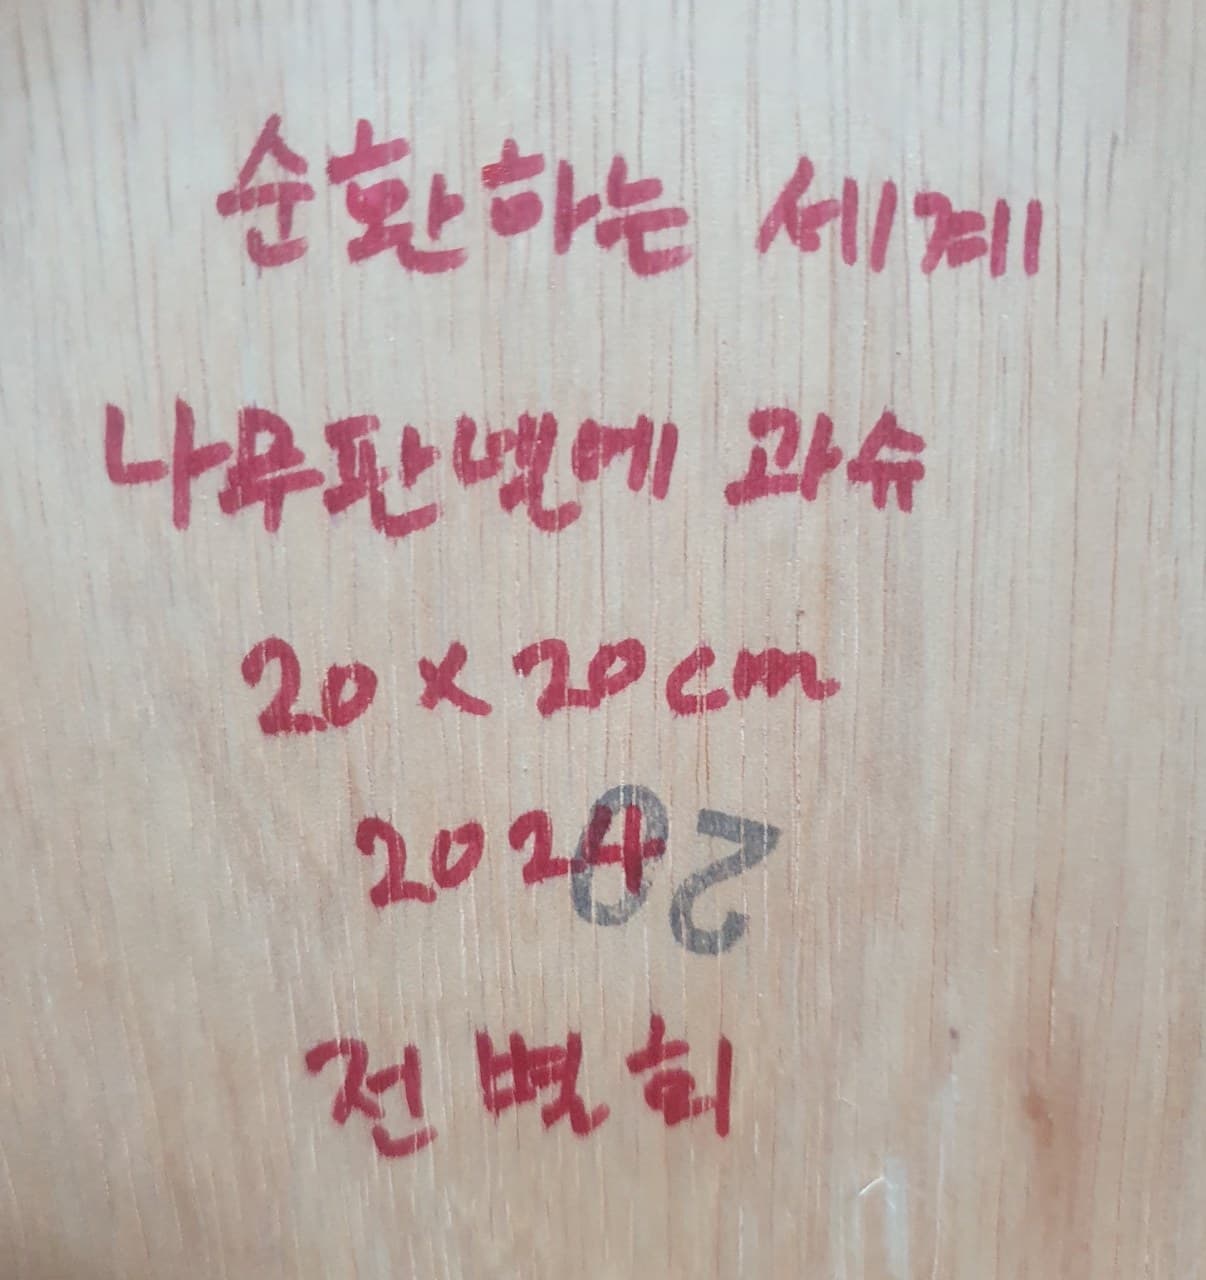 순환하는 세계
나무판넬에 과슈
20 x 20cm
2024
20
전 희